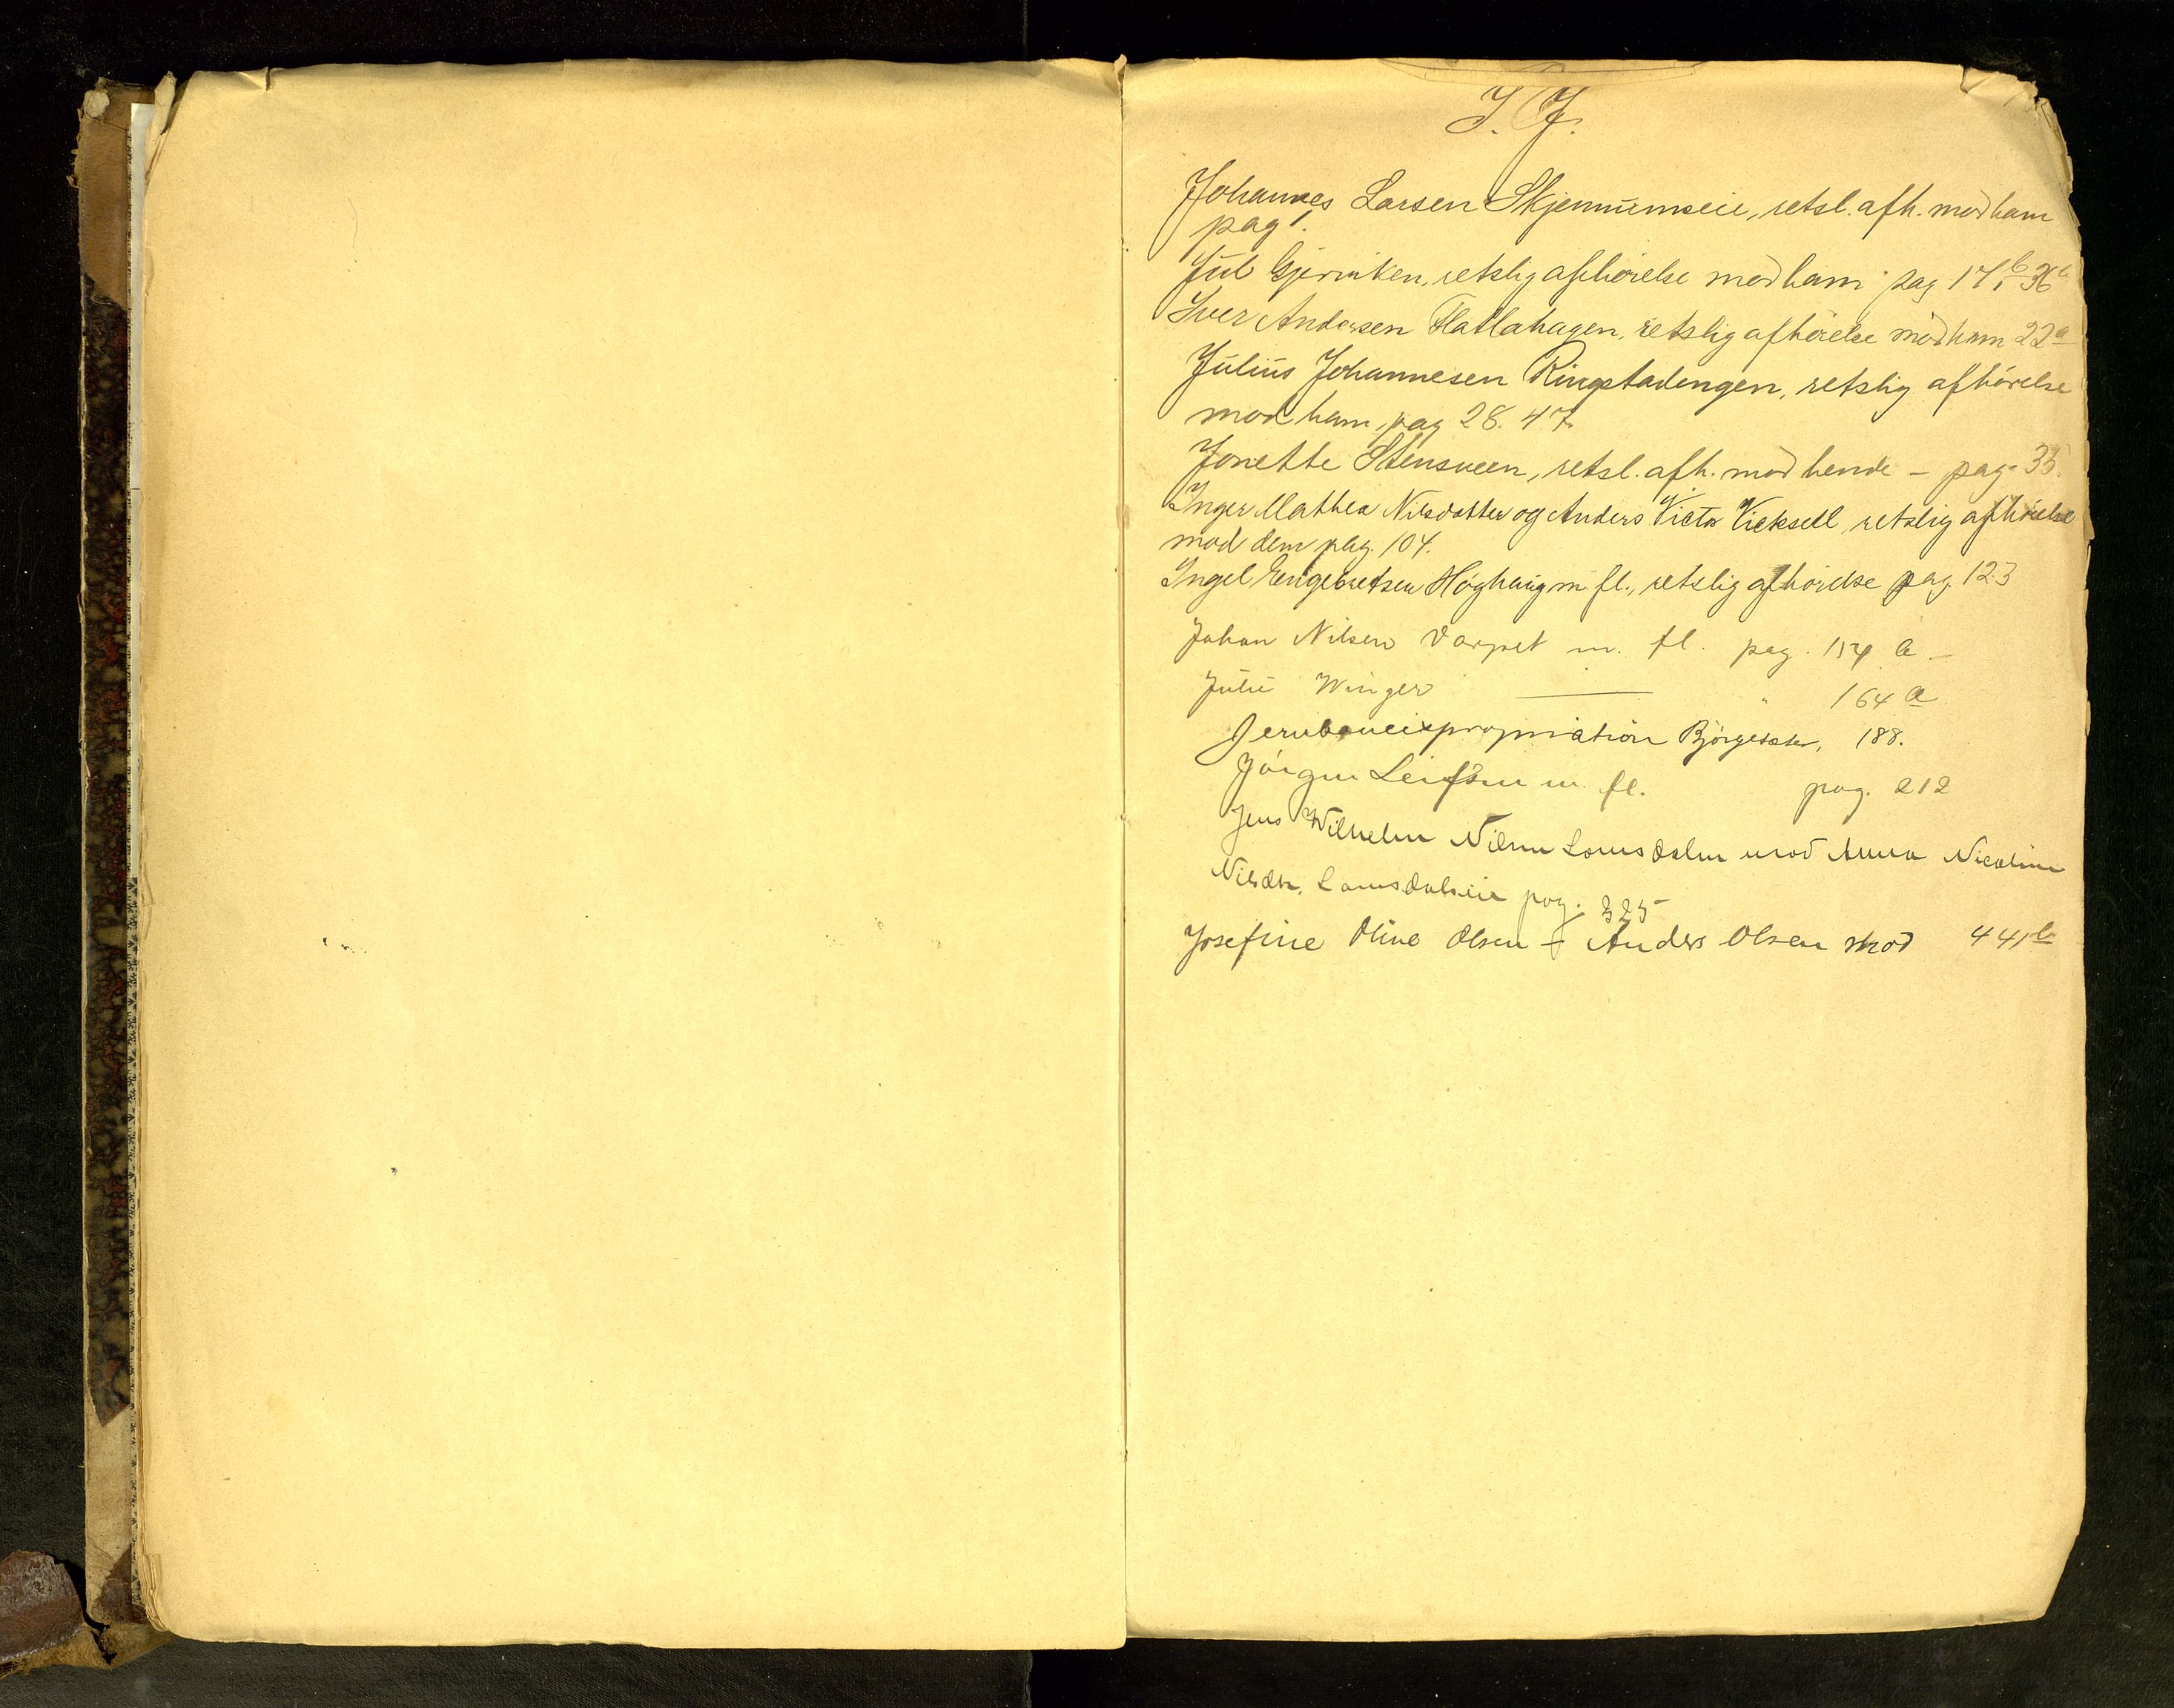 I. J.
Johannes Larsen Skjennumseie, retsl. afh. mod ham
pag 1.
Jul Gjerviken, retslig afhörelse mod ham pag 17b, 36
Iver Andersen Flatlahagen, retslig afhörelse mod ham 22a
Julius Johannesen Ringstadengen, retslig afhörelse
mod ham pag 28. 47
Jonette Stensveen, retsl. afh. mod hende - pag. 35.
Inger Mathea Nilsdatter og Anders Victor Vicksell retslig afhörelse
mod dem pag. 104.
Ingel Engebretsen Höghaug m. fl., retslig afhörelse pag 123
Johan Nilsen Varpet m. fl. pag. 154 a -
Julie Winger — " 164 a
Jernbaneexpropriation Björgeseter, 188.
Jörgen Leifsen m. fl. pag. 212
Jens Wilhelm Nilsen Lomsdalen mod Anna Nicoline
Nilsdtr. Lomsdalseie pag. 325
Josefine Oline Olsen - Anders Olsen mod 441b